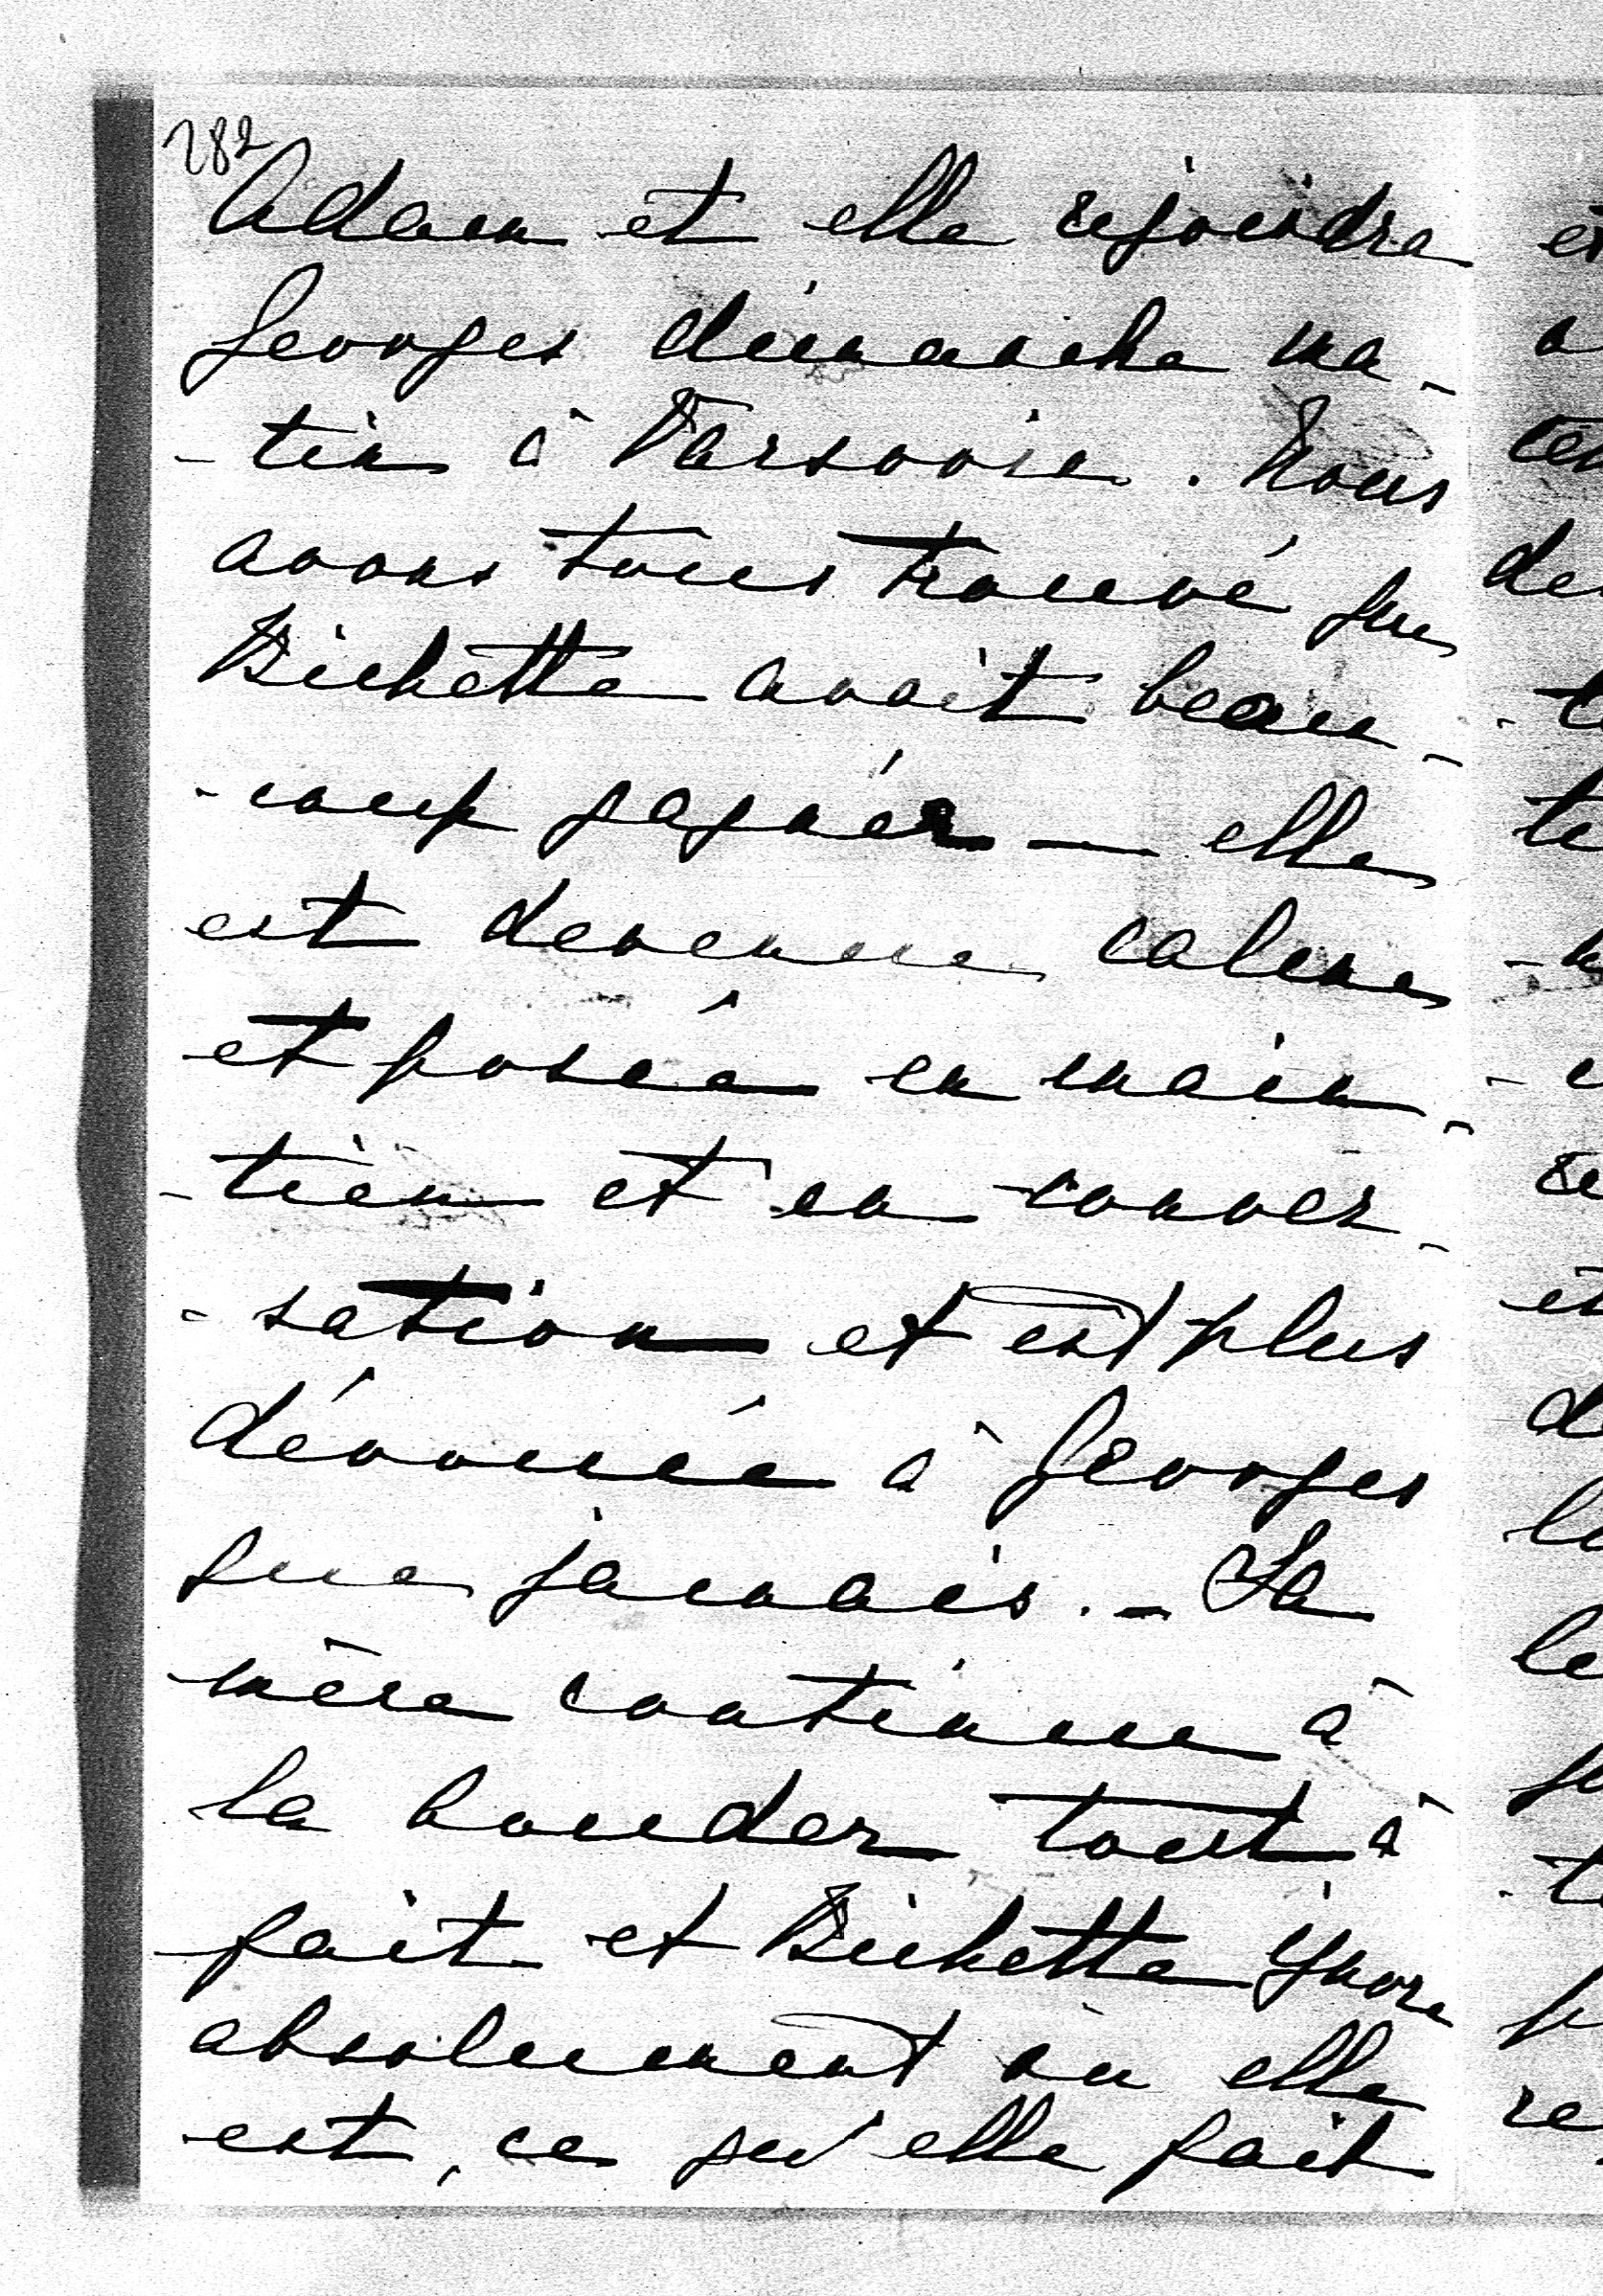 282
Adam et elle rejoindre
Georges dimanche ma-
-tin à Varsovie. Nous
avons tous trouvé que
Bichette avait beau-
-coup gagner — elle
est devenue calme
et posée en main-
-tien et en conver-
-sation et est plus
dévouée à Georges
que jamais. - Sa
mère continue à
la bouder tout à
fait et Bichette ignore
absolument où elle
est, ce qu'elle fait